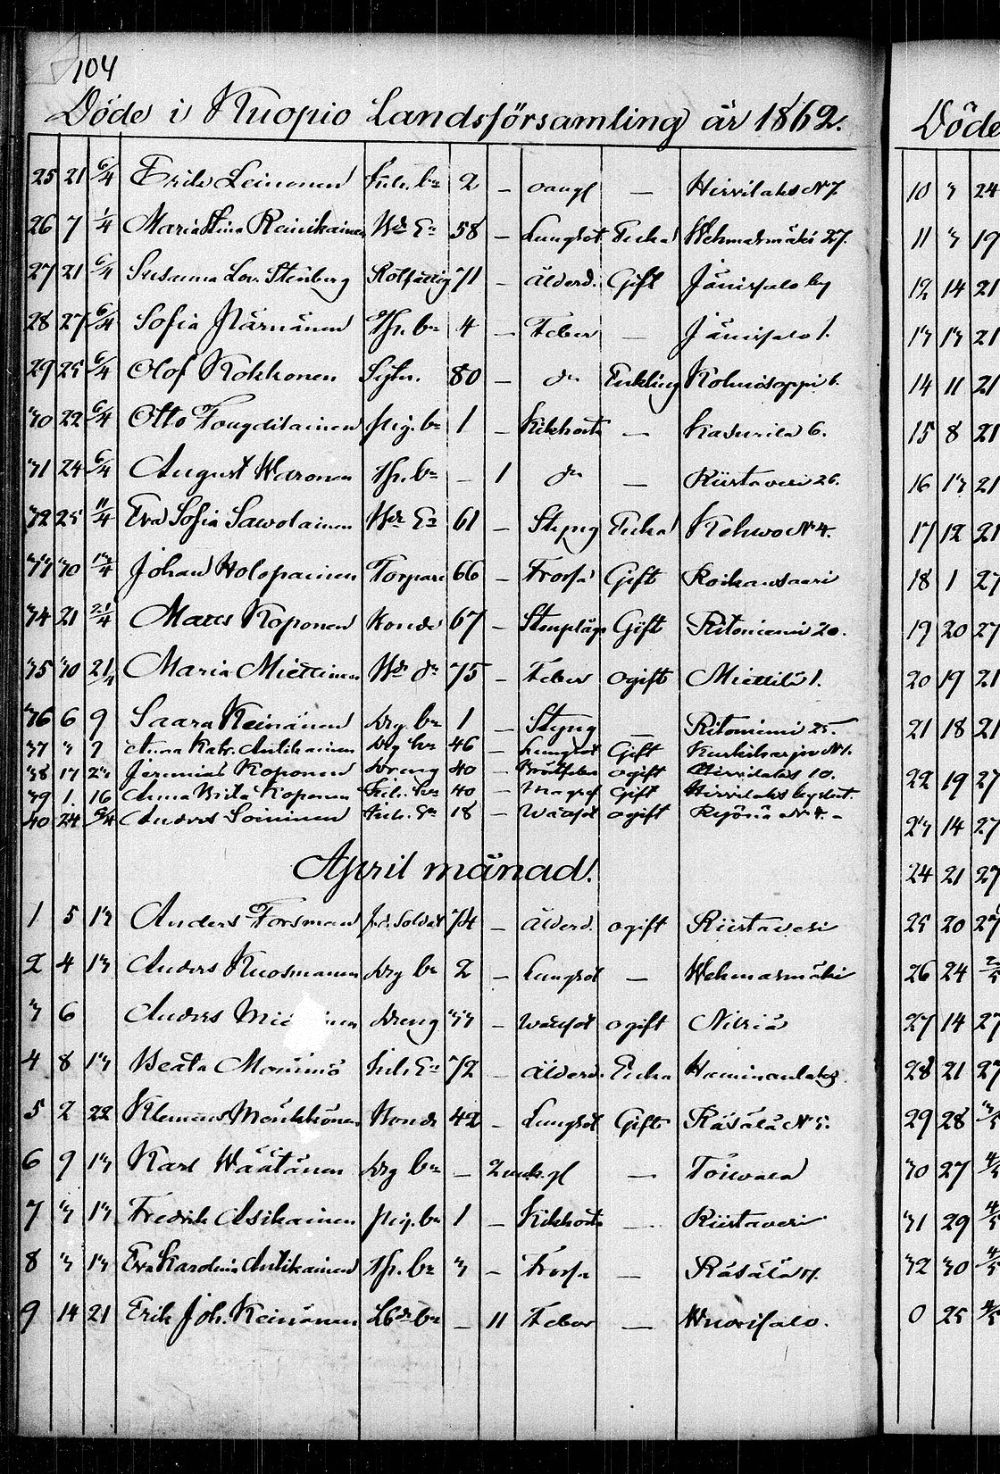 104
Döde i Kuopio Landsförsamling år 1862.
Döde
25 21 6/4 Erik Leinonen Inh. bn 2 – oangf — Hirvilaks N 7.
26 7 1/4 Maria Stina Reinikainen 58 – Lungsot Enka Wehmasmäki 27.
27 21 6/4 Susanna Lov. Stenberg Rotfattig 71 – ålderd. Gift Jänissalo by
28 27 6/4 Sofia Närnänen bn 4 – Feber — Jänissalo 1.
29 25 6/4 Olof Kokkonen 80 – do Enkling Kolmisoppi 6.
30 22 6/4 Otto Fougdilainen pig. bn 1 – Kikhosta — Kasurila 6.
31 24 6/4 August Waronen bn – 1 do — Riistavesi 26.
32 25 11/4 Eva Sofia Sawolainen 61 – Styng Enka Kehwo N 4.
33 30 13/4 Johan Holopainen Torpare 66 – Frossa Gift Roikansaari
34 21 21/4 Koponen Bonde 67 – Gift Ritoniemi 20.
35 30 21/4 Maria Miettinen 75 – Feber ogift Miettilä 1.
36 6 9 Saara Keinänen drg bn 1 – Styng — Ritoniemi 25.
37 3 7 Anna Katr. Antikainen 46 – Lungsot Gift Kurkiharju N 1.
38 17 23 Jeremias Koponen dreng 40 – ogift Hirvilaks 10.
39 1. 16 Anna Brita Koponen 40 – Gift Hirvilaks
40 24 Anders Soininen 18 – ogift
April månad.
1 5 13 Anders Forsman f.d. Soldat 74 – ålderd. ogift Riistavesi
2 4 13 Anders Kuosmanen drg bn 2 – Lungsot — Wehmasmäki
3 6 Anders dreng 33 – wattusot ogift Nilsiä
4 8 13 Beata Moninó 72 – ålderd. Enka Haminanlaks.
5 2 22 Klemens Mönkkönen Bonde 42 – Lungsot Gift Räsälä N 5.
6 9 13 Karl Wäätänen drg bn – 2 — Toivala
7 3 13 Fredrik Asikainen pig. bn 1 – Kikhosta — Riistavesi
8 3 13 Eva Karolina Antikainen bn 3 – Frossa — Räsälä
9 14 21 Erik Joh. Keinänen bn – 11 Feber — Wuorisalo.
10 3 24
11 3 19
12 14 21
13 13 21
14 11 21
15 8 21
16 13 21
17 12 21
18 1 27
19 20 27
20 19 21
21 18 21
22 19 27
23 14 27
24 21 27
25 20 27
26 24
27 14 27
28 21 27
29 28
30 27
31 29
32 30
0 25